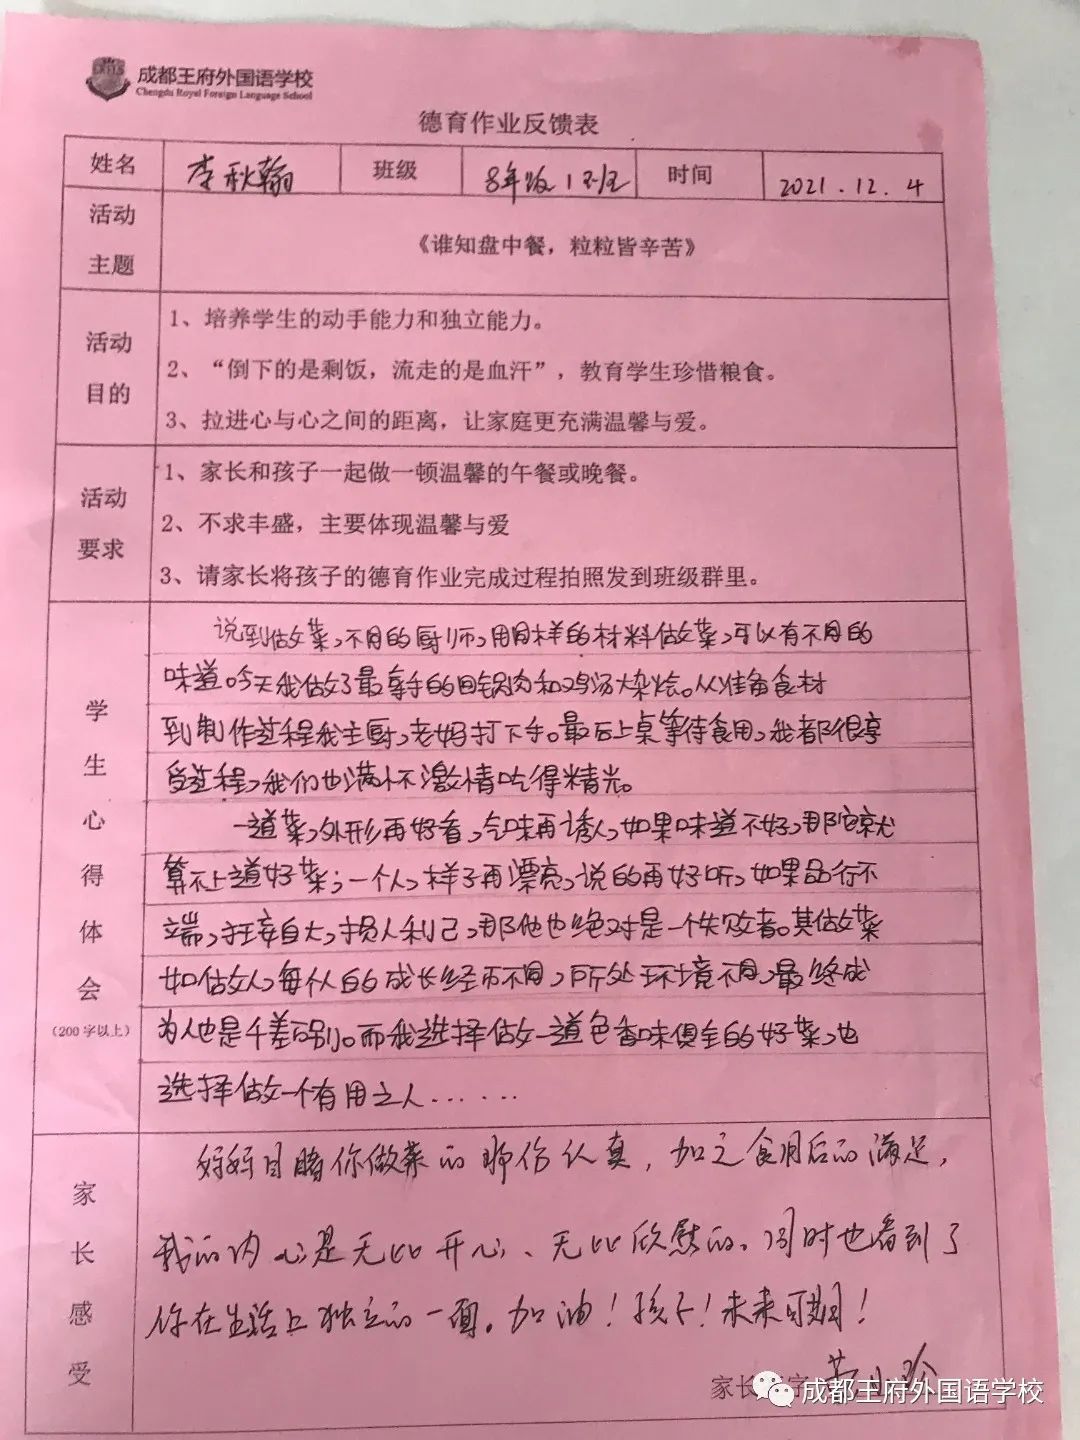 成都王府外国语学校
Chengdu Royal Foreign Language School
德育作业反馈表
姓名 李秋翰 班级 8年级1班 时间 2021.12.4
活动主题
《谁知盘中餐，粒粒皆辛苦》
活动目的
1、培养学生的动手能力和独立能力。
2、“倒下的是剩饭，流走的是血汗”，教育学生珍惜粮食。
3、拉进心与心之间的距离，让家庭更充满温馨与爱。
活动要求
1、家长和孩子一起做一顿温馨的午餐或晚餐。
2、不求丰盛，主要体现温馨与爱
3、请家长将孩子的德育作业完成过程拍照发到班级群里。
学生心得体会
(200字以上)
说到做菜，不同的厨师，用同样的材料做菜，可以有不同的
味道。今天我做了最拿手的回锅肉和鸡汤大杂烩。从准备食材
到制作过程我主厨，老妈打下手。最后上桌等待食用，我都很享
受过程，我们也满怀激情吃得精光。
一道菜，外形再好看，气味再诱人，如果味道不好，那它就
算不上道好菜；一个人，样子再漂亮，说的再好听，如果品行不
端，狂妄自大，损人利己，那他也绝对是一个失败者。其做菜
如做人，每个人的成长经历不同，所处环境不同，最终成
为人也是千差万别。而我选择做一道色香味俱全的好菜，也
选择做一个有用之人……
家长感受
妈妈目睹你做菜的那份认真，加之食用后的满足，
我的内心是无比开心、无比欣慰的。同时也看到了
你在生活上独立的一面。加油！孩子！未来可期！
家长 字
成都王府外国语学校